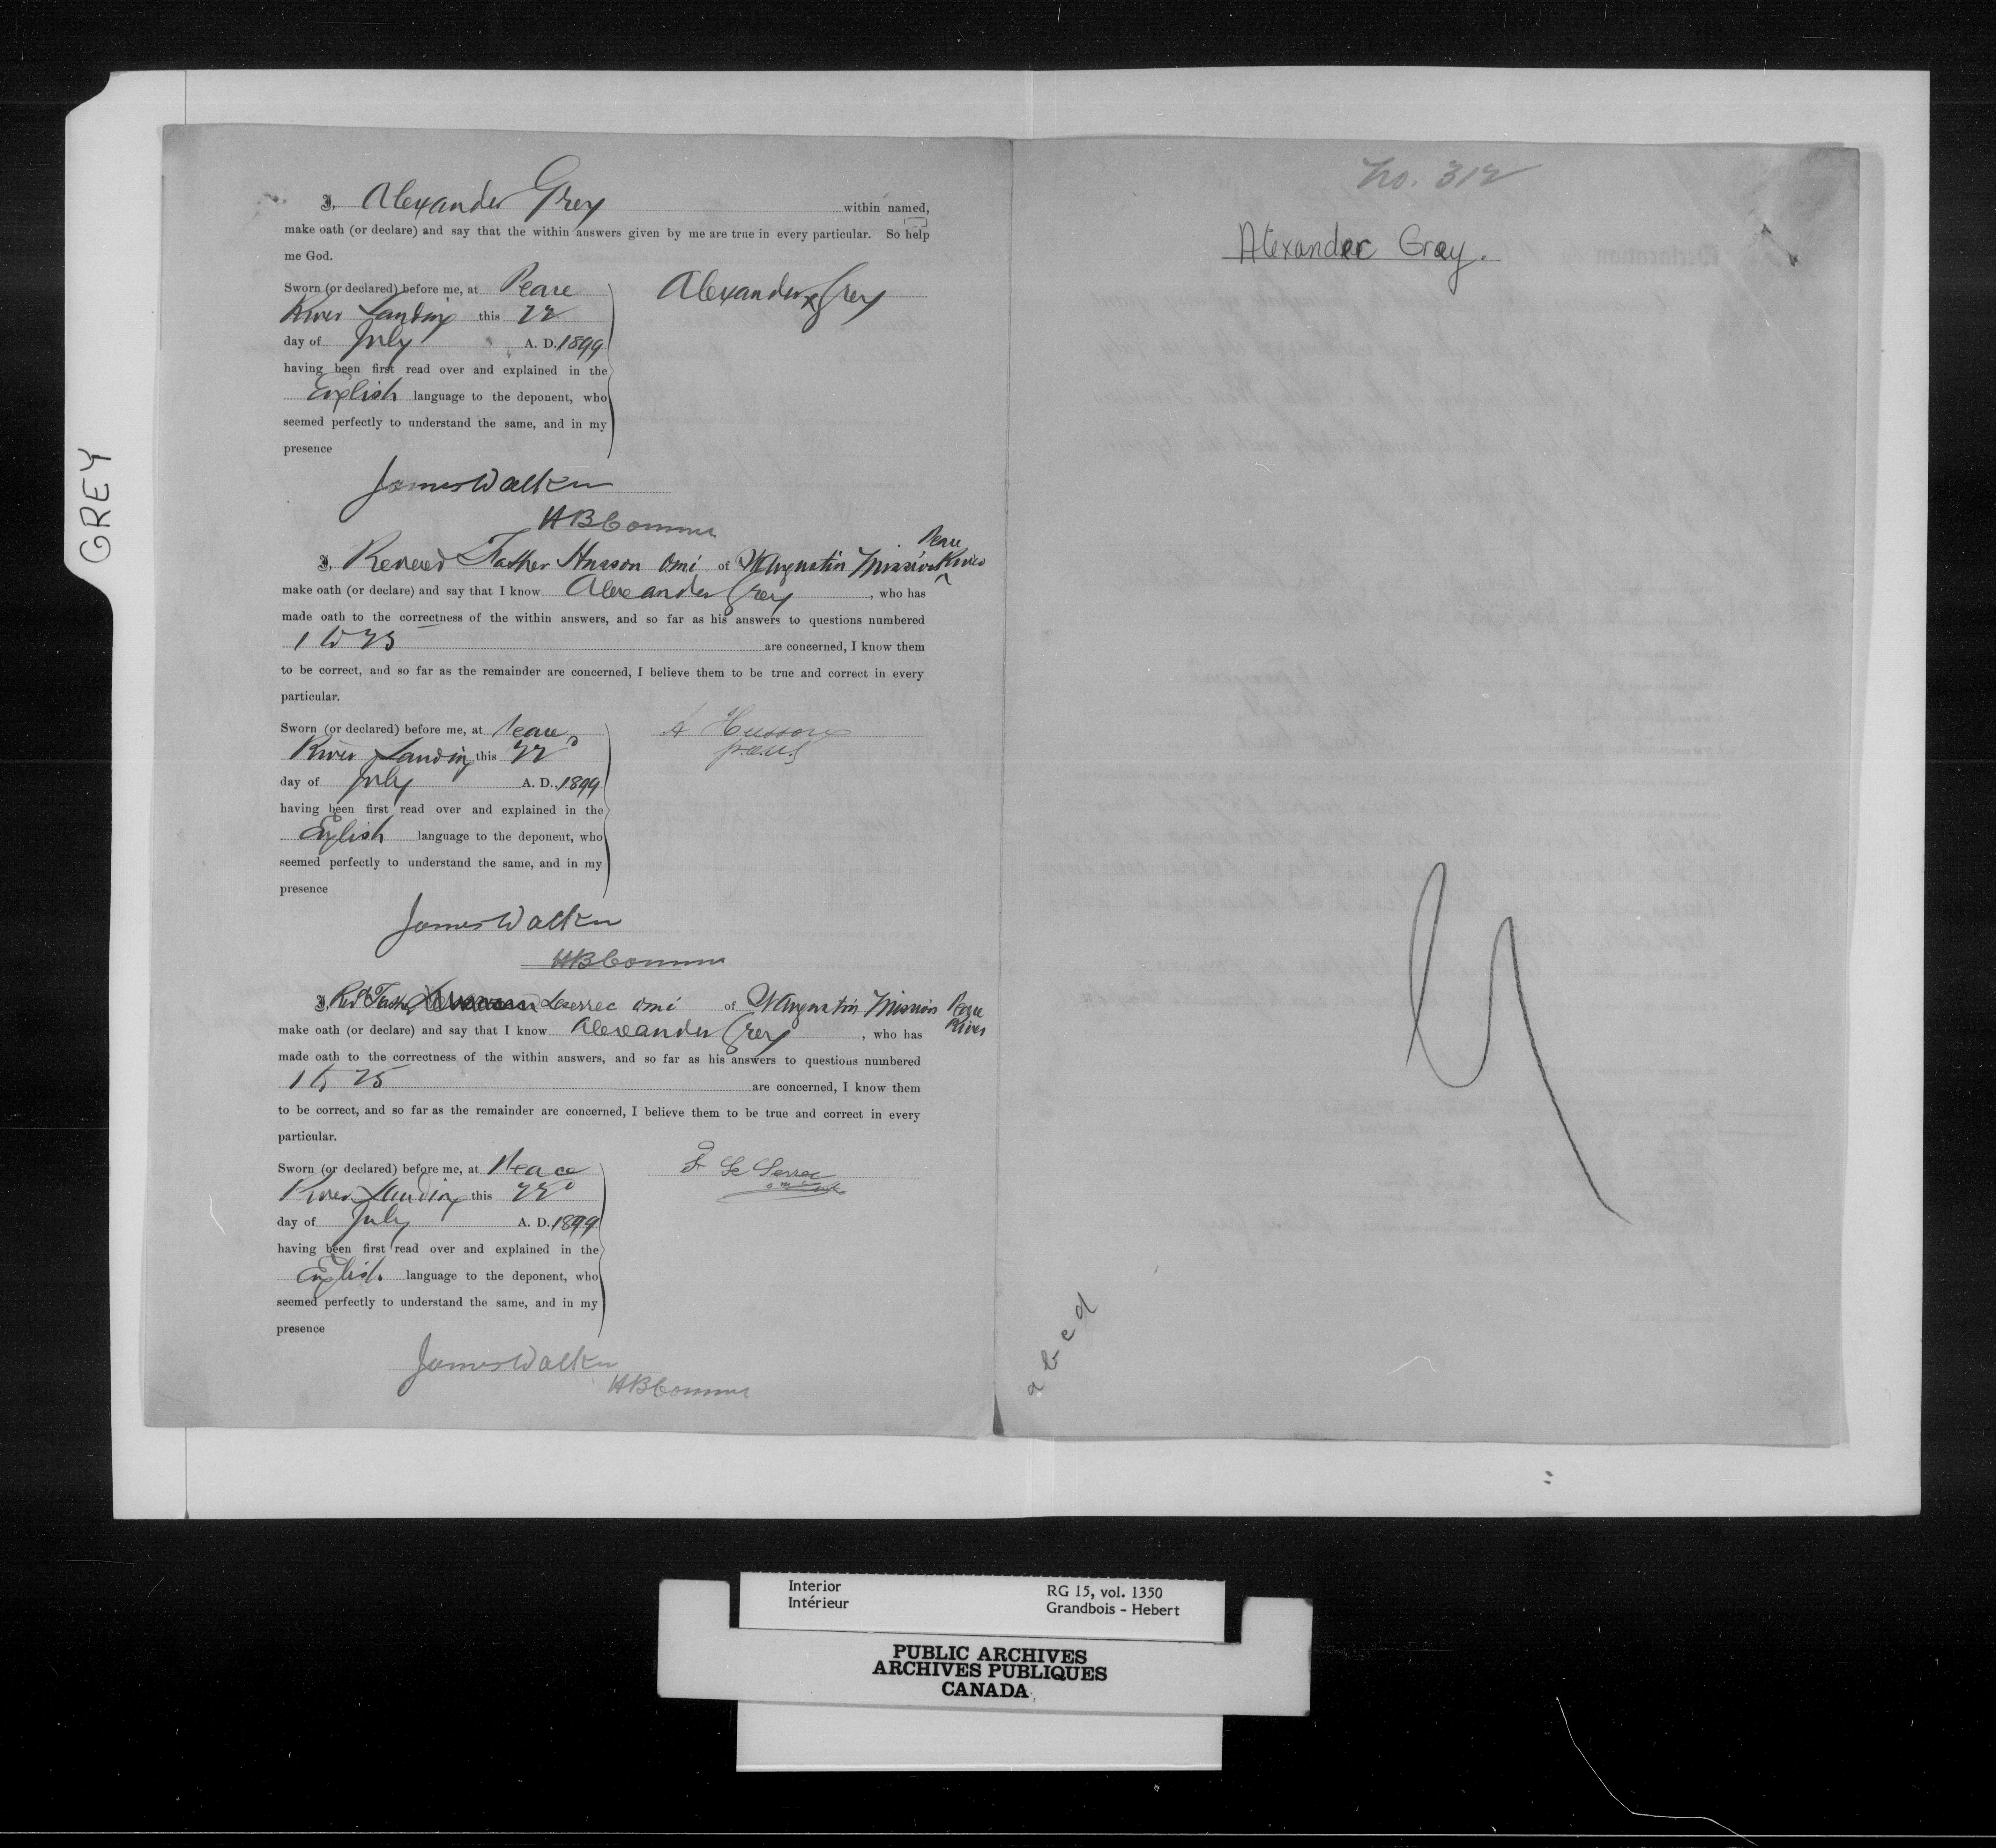 GREY
I, Alexander Grey within named,
make oath (or declare) and say that the within answers given by me are true in every particular. So help
me God.
Sworn (or declared) before me, at Peace
River Landing this 22
day of July A. D. 1899
having been first read over and explained in the
English language to the deponent, who
seemed perfectly to understand the same, and in my
presence
Alexander Grey
James Walker
HB Commr
I, Reverend Father Husson omi of St Augustin Mission Peace River
make oath (or declare) and say that I know Alexander Grey, who has
made oath to the correctness of the within answers, and so far as his answers to questions numbered
1 to 25 are concerned, I know them
to be correct, and so far as the remainder are concerned, I believe them to be true and correct in every
particular.
Sworn (or declared) before me, at Peace
River Landing this 22d
day of July A. D. 1899
having been first read over and explained in the
English language to the deponent, who
seemed perfectly to understand the same, and in my
presence
A Husson
James Walker
HB Commr
I, Revd Father Leserrec omi of St Augustin Mission Peace River
make oath (or declare) and say that I know Alexander Grey, who has
made oath to the correctness of the within answers, and so far as his answers to questions numbered
1 to 25 are concerned, I know them
to be correct, and so far as the remainder are concerned, I believe them to be true and correct in every
particular.
Sworn (or declared) before me, at Peace
River Landing this 22d
day of July A. D. 1899
having been first read over and explained in the
English language to the deponent, who
seemed perfectly to understand the same, and in my
presence
Le Serrec
James Walker
HB Commr
No. 312
Alexander Grey.
Interior
Intérieur
RG 15, vol. 1350
Grandbois - Hebert
PUBLIC ARCHIVES
ARCHIVES PUBLIQUES
CANADA